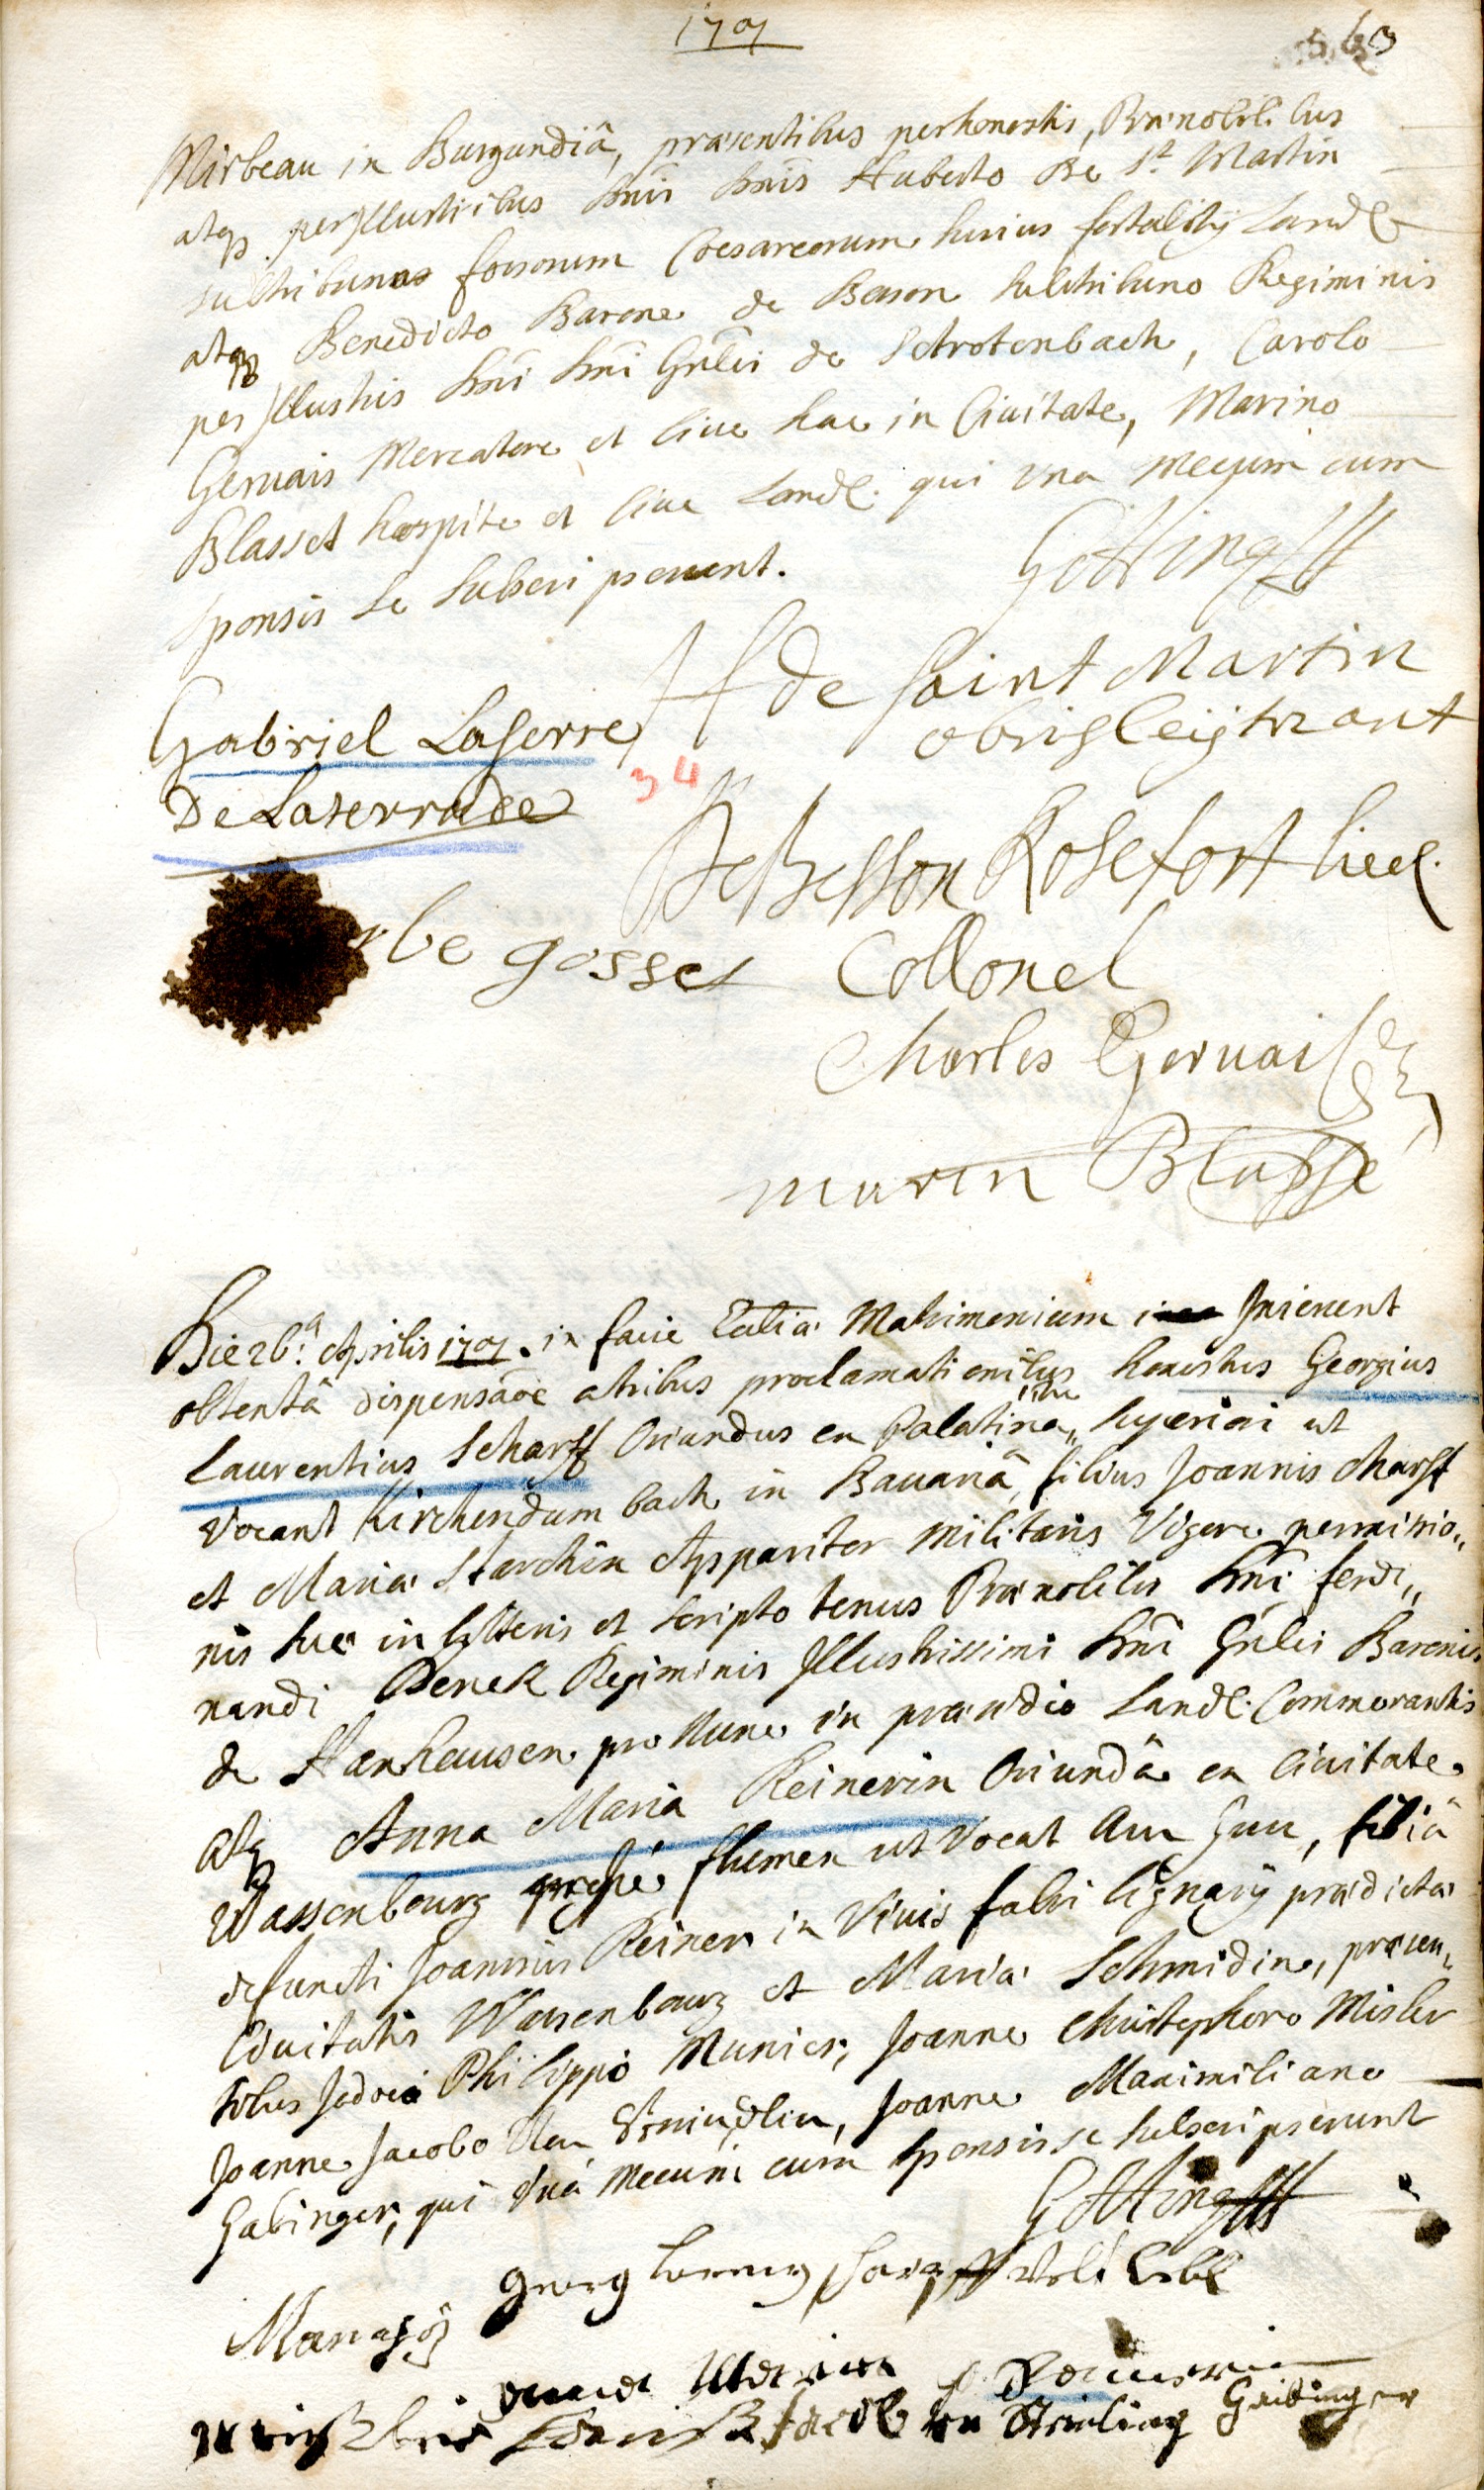 1707
563
Mirbeau in Burgundiâ, præsentibus perhonestis, Prænobilibus
atq perJllustribus Dnis Dnis Huberto De St Martin
subtribuno foronum Cæsareorum huius fortality Landl
atq Benedicto Barone de Beson subtribuno Regiminis
perJllustris Dni Dni Gnlis de Schrotenbach, Carolo
Gervais Mercatore et Cive hac in Civitate, Marino
Blasset hospite et Cive Landl. qui una Mecum cum
sponsis se subscripserunt.
Gotting
H de saint Martin
obrisleijtnant
Gabriel Laserre
De Laserrade
34
DeBesson Rosefort lieu.
Collonel
be gosset
Charles Gervais
marin Blassé
Die 26a Aprilis 1707. in facie Ecclia Matrimonium Inierunt
obtentâ dispensaõe a tribus proclamationibus honestus Georgius
Laurentius Scharff Oriundus ex Palatina superiori ut
Vocant Kirchendumbach in Bavariâ, filius Joannis Scharff
et Maria Starchin Appariter Militaris Vigore permissio„
nis suæ in Lytteris et scripto tenus Prænobilis Dni ferdi„
nandi Denek Regiminis Jllustrissimi Dni Gnlis Baronis
de Hanhausen pro Nunc in præsidio Landl. Commorantis
atq Anna Maria Reinerin Oriundâ ex Civitate
Wassenbourg prope flumen ut Vocat Am Inn, filiâ
defuncti Joannis Reiner in Vivis fabri lignarÿ prædicta
Civitatis Wassenbourg et Maria Schmidin, præsen„
tibus Jodoco Philippo Munier, Joanne Christophoro Misler
Joanne Jacobo Neu Streindlin, Joanne Maximiliano
Gabinger, qui Vná Mecum cum sponsis se subscripserunt
Gotting
Georg Lorenz Scharff
Anna Maria Reinerin
Gaibinger